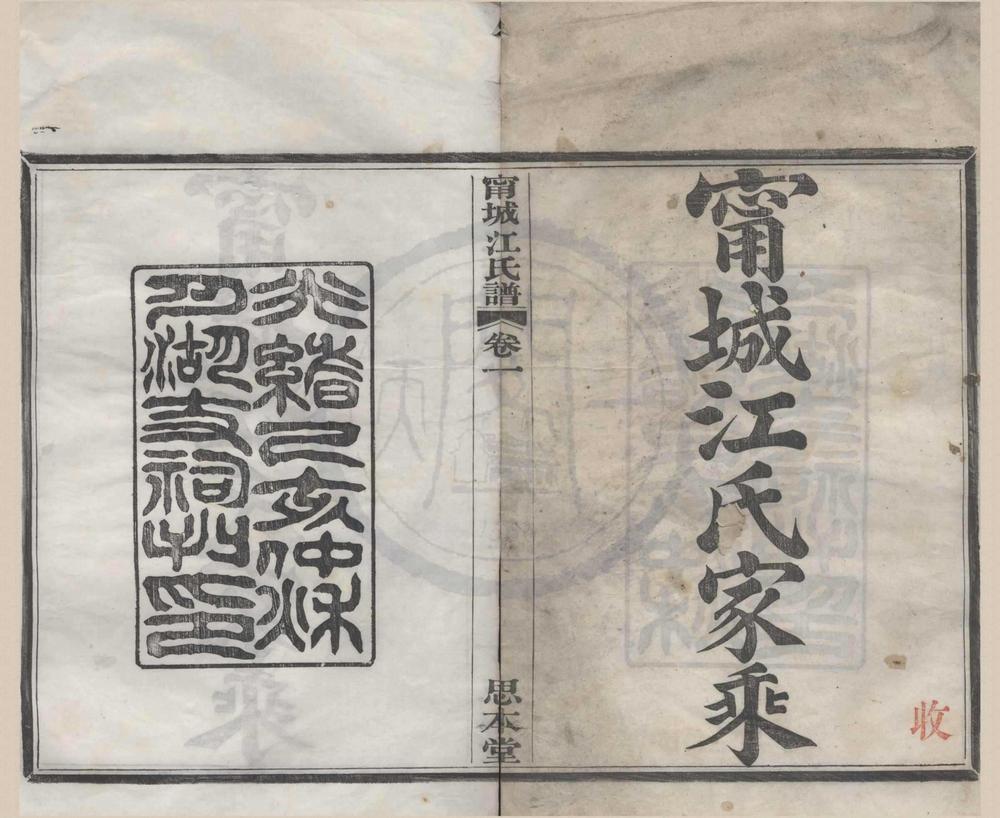 甯城江氏家乘
收
甯城江氏譜 卷一 思本堂
光緒己亥仲秋
月湖支祠印